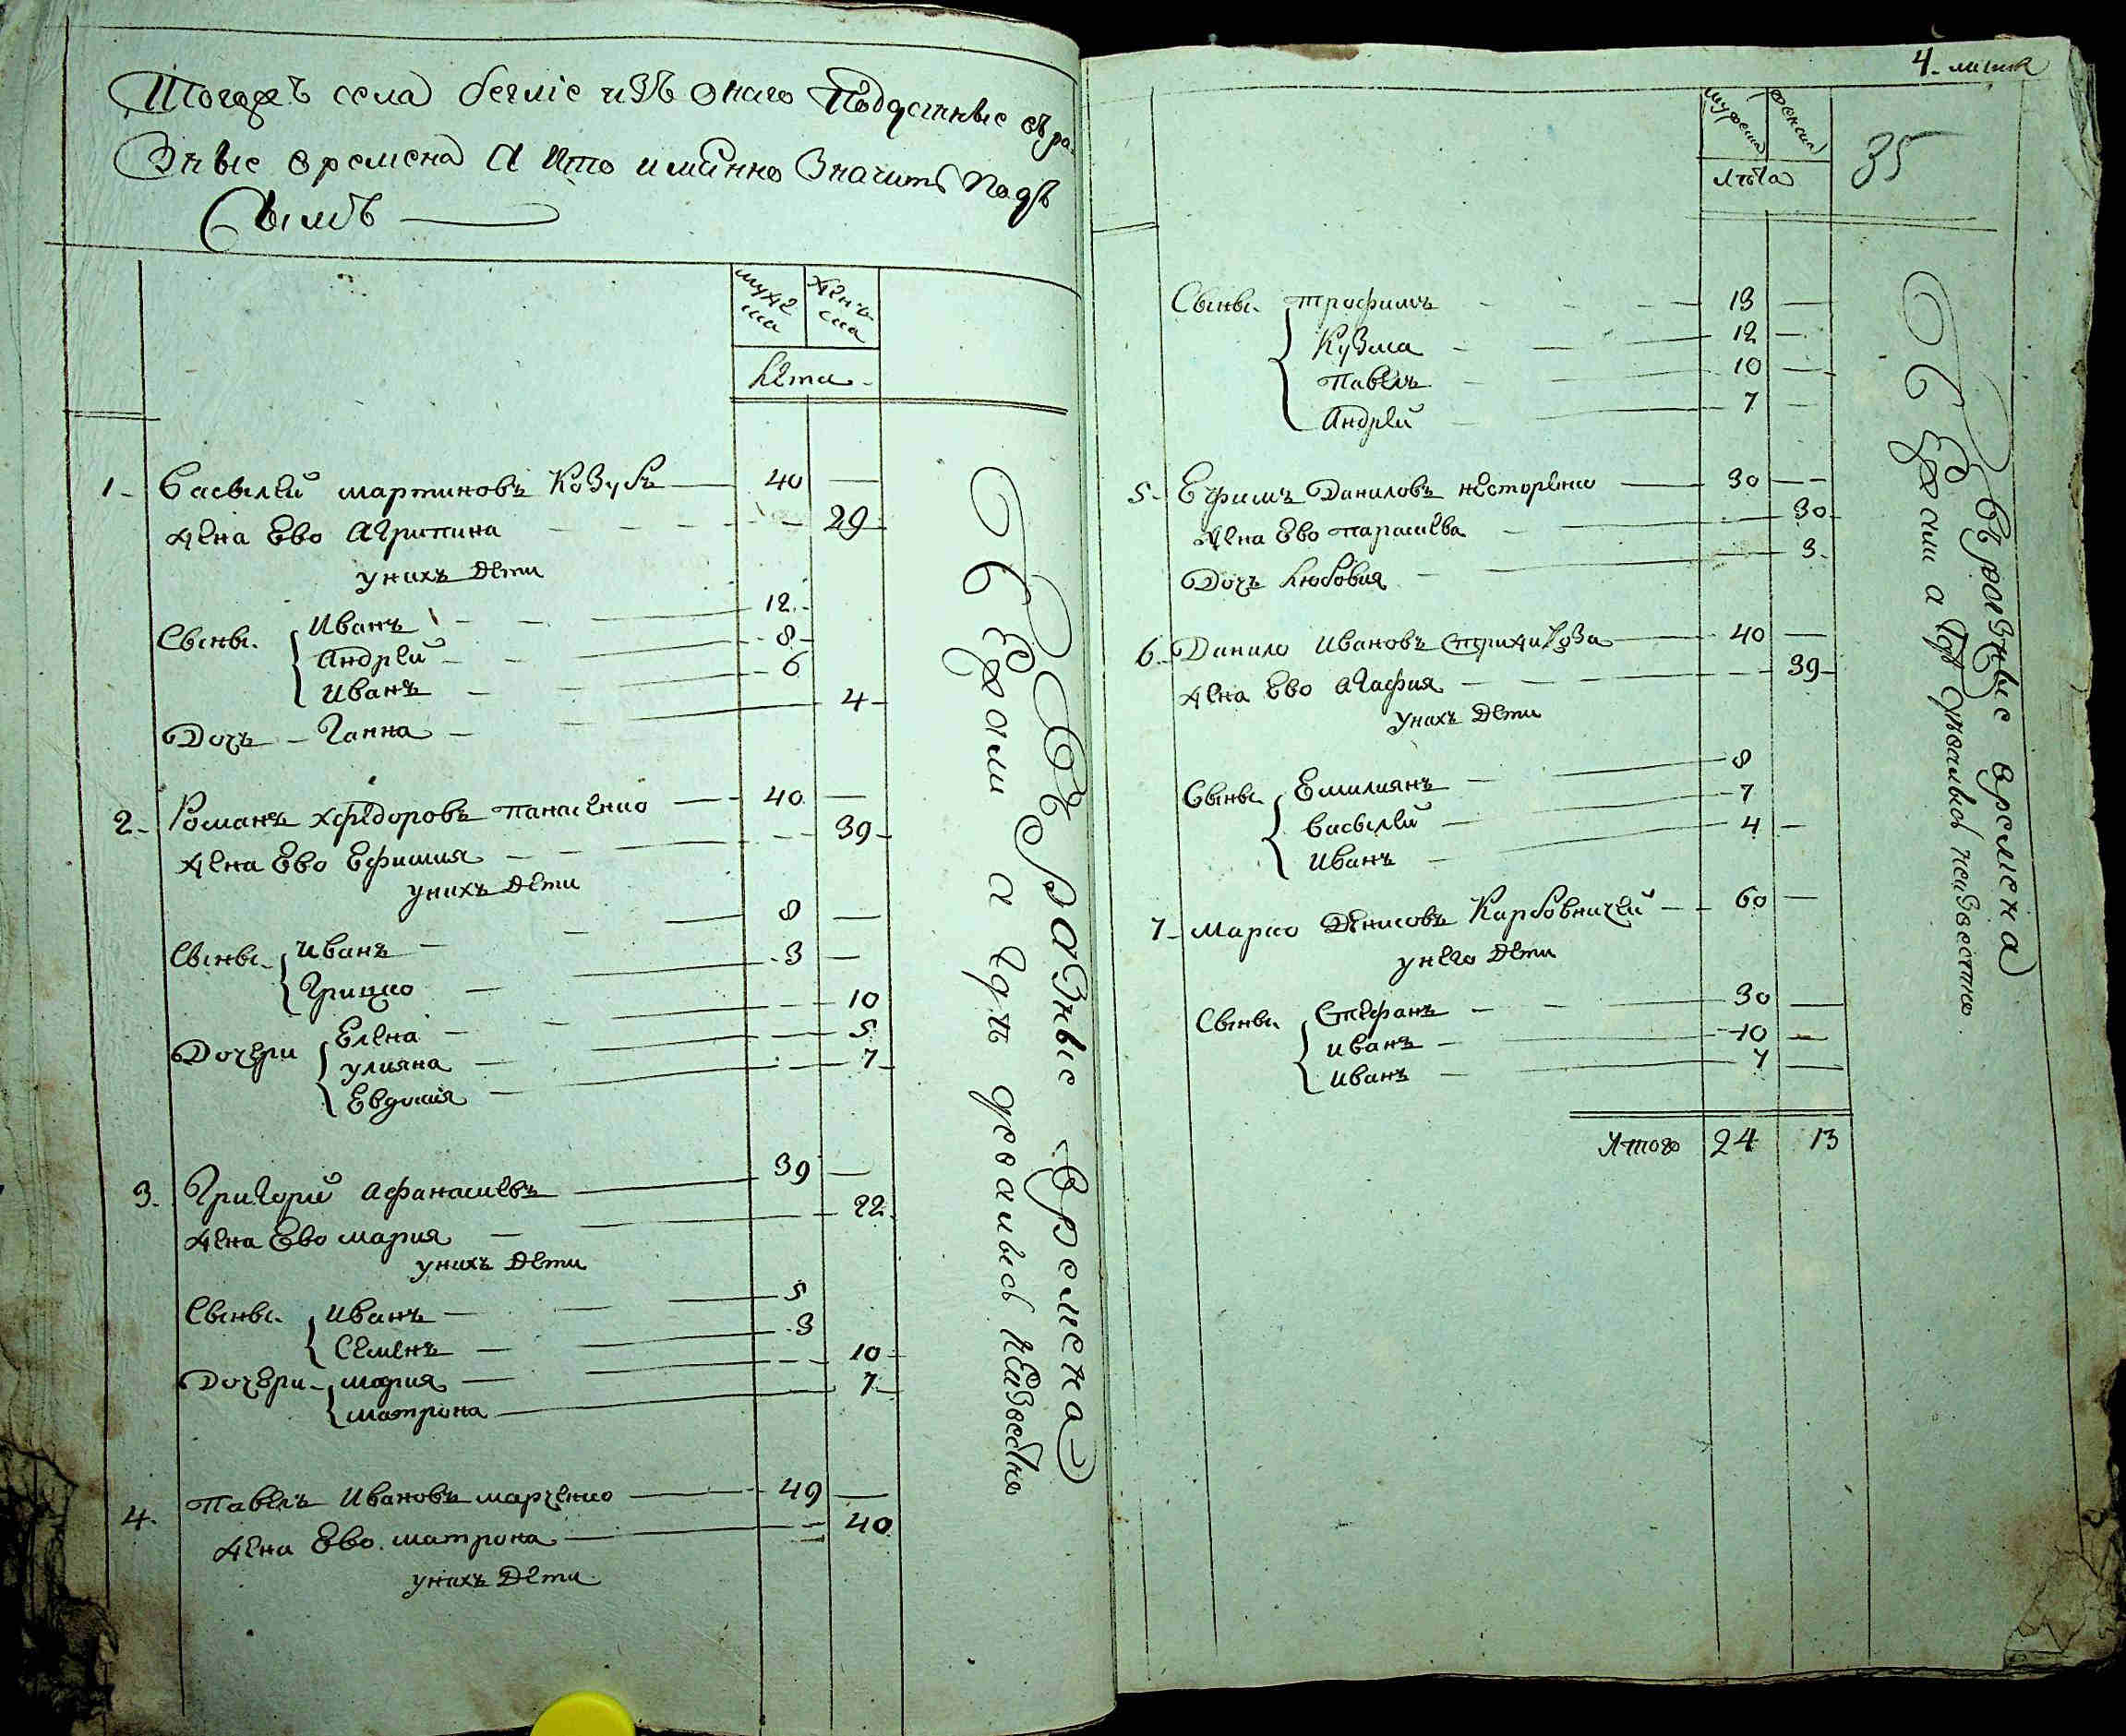 Тогожъ села беглїе изъ онаго Подданные въ ра-
зные времена А кто имянно значитъ подъ
симъ
муже
ска
женъ
ска
Лета
1. Василѣй мартиновъ Козубъ 40
жена Ево Агрипина 29
у нихъ Дети
Сыны. Иванъ 12
Андрѣй 8
Иванъ 6
Дочъ Ганна 4
2. Романъ хфедоровъ панасенко 40
жена Ево Ефимия 39
у нихъ Дети
Сыны. Иванъ 8
Грицко 3
Дочери Елена 10
улияна 5
Евдокия 7
3. Григорий афанасиевъ 39
жена Ево мария 22
у нихъ Дети
Сыны. Иванъ 5
Семенъ 3
Дочери мария 10
матрона 7
4. Павелъ Ивановъ марченко 49
жена Ево матрона 40
у нихъ Дети
Въ разные времена
бежали а где девались неизвестно
4. листа
35
мужеска
женска
Лѣта
Сыны. трофимъ 13
Кузма 12
Павелъ 10
Андрѣй 7
5. Ефимъ Даниловъ несторенко 30
жена Ево параскева 30
Дочъ Любовия 3
6. Данило Ивановъ 40
жена Ево Агафия 39
у нихъ Дети
Сыны Емилиянъ 8
Василѣй 7
Иванъ 4
7. марко Денисовъ Карбовничей 60
у него Дети
Сыны. Стефанъ 30
Иванъ 10
Иванъ 7
Итого 24 13
Въ разные времена
бежали а где девались неизвестно